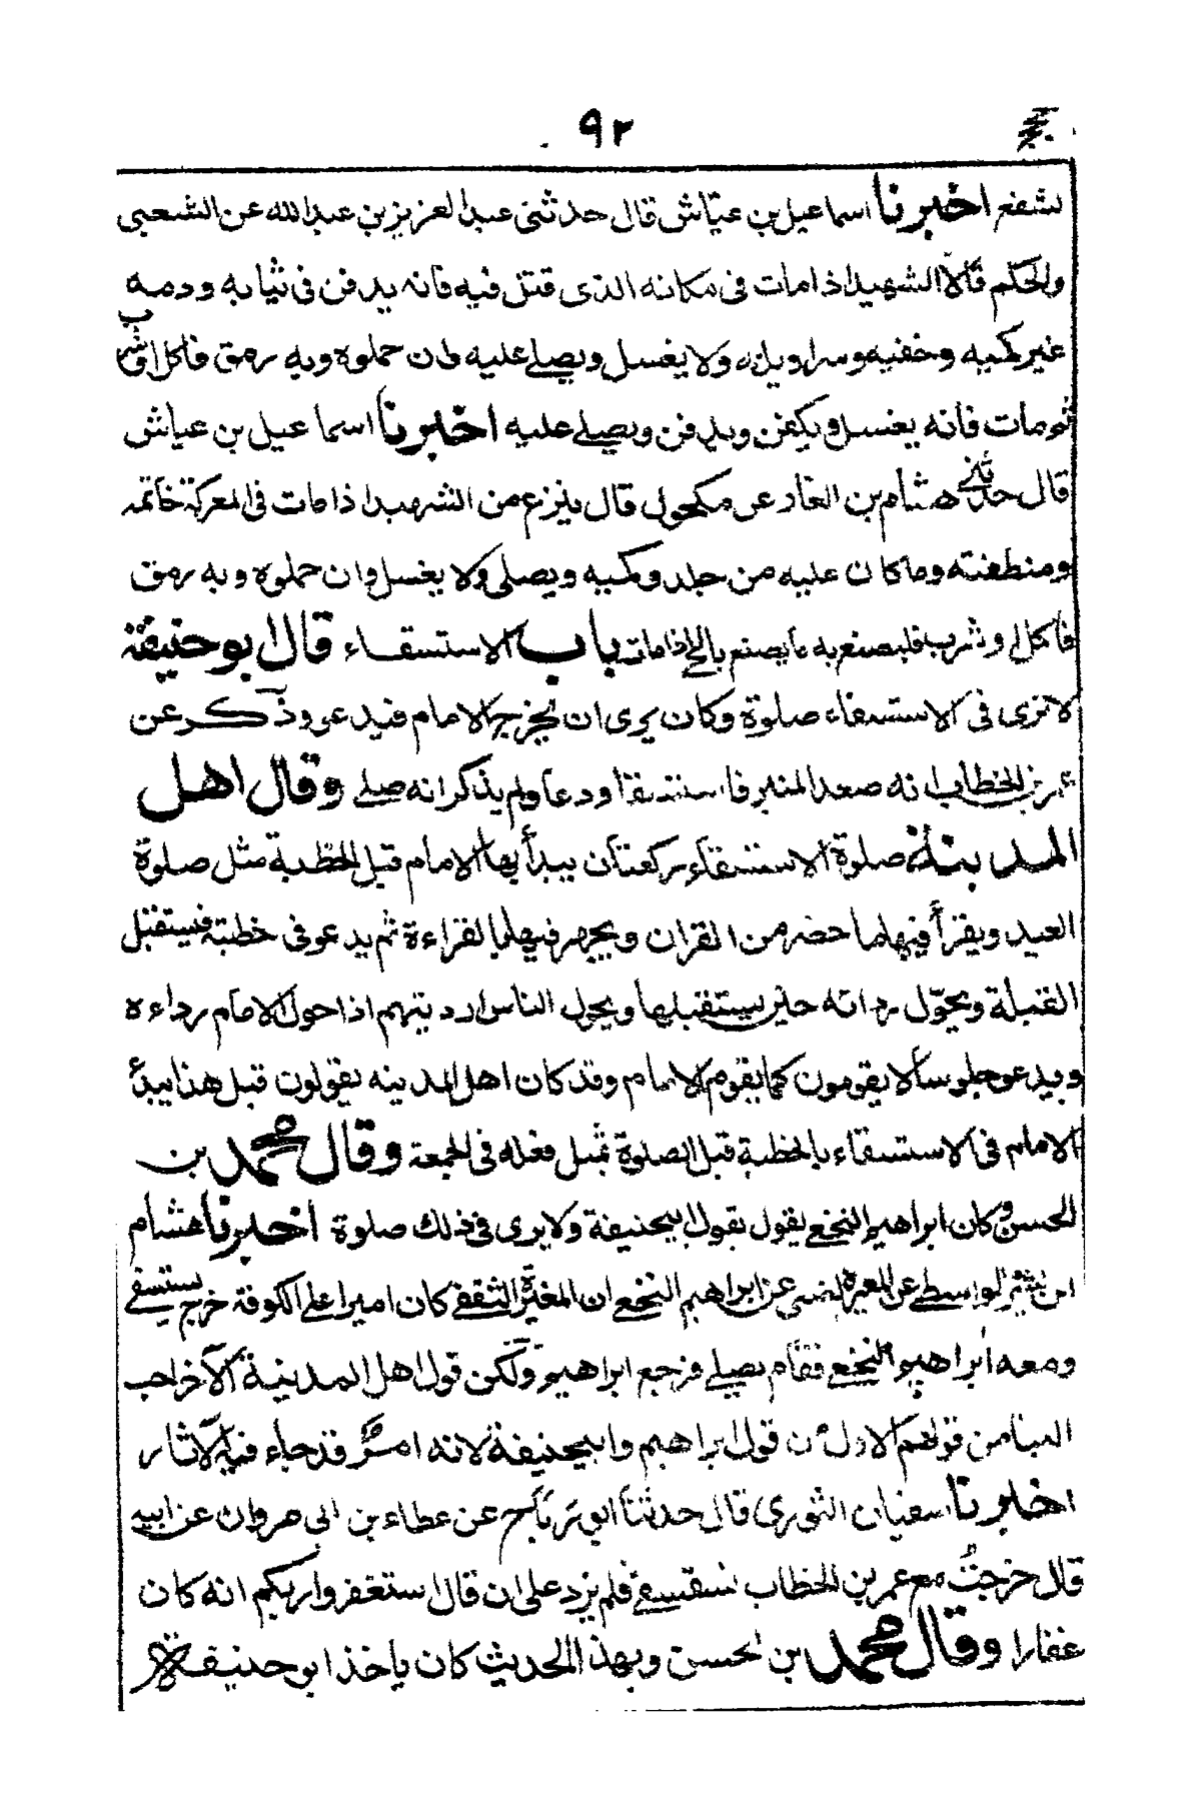 ٩٢
لشفع اخبرنا اسماعيل بن عيّاش قال حدثنى عبد العزيز بن عبد الله عن الشعبى
والحكم قالا الشهيد اذا مات فى مكانه الذى قتل فيه فانه يدفن فى ثيابه ودمه
غير كميه وخفيه وسراويله ولا يغسل ويصلے عليه وان حملوه وبه رمق فاكل او شرب
ثم مات فانه يغسل ويكفن ويدفن ويصلے عليه اخبرنا اسماعيل بن عياش
قال حدثنے هشام بن الغاز عن مكحول قال ينزع من الشهيد اذا مات فى المعركة خاتمه
ومنطقته وما كان عليه من جلد وكميه ويصلى ولا يغسل وان حملوه وبه رمق
فاكل او شرب فليصنع به ما يصنع بالحى اذا مات باب الاستسقاء قال ابو حنيفة
لا نرى فى الاستسقاء صلوة وكان يرى ان يخرج الامام فيدعو وذكر عن
عمر بن الخطاب انه صعد المنبر فاستسقا ودعا ولم يذكر انه صلے وقال اهل
المدينة صلوة الاستسقاء ركعتان يبدأ بها الامام قبل الخطبة مثل صلوة
العيد ويقرأ فيهما ما حضر من القران ويجهر فيهما بالقراءة ثم يدعو فى خطبته فيستقبل
القبلة ويحوّل ردائه حين يستقبلها ويحول الناس ارديتهم اذا حول الامام رداءه
ويدعو جلوسا لا يقومون كما يقوم الامام وقد كان اهل المدينه يقولون قبل هذا يبدأ
الامام فى الاستسقاء بالخطبة قبل الصلوة بمثل فعله فى الجمعة وقال محمد بن
الحسن وكان ابراهيم النخعے يقول بقول ابيحنيفة ولا يرى فى ذلك صلوة اخبرنا هشام
ابن بشير الواسطے عن المغيرة الضبى عن ابراهيم النخعے ان المغيرة الثقفے كان اميرا على الكوفة خرج يستسقے
ومعه ابراهيم النخعے فقام يصلے فرجع ابراهيم ولكن قول اهل المدينة الآخر احب
الينا من قولهم الاول ومن قول ابراهيم وابيحنيفة لانه امر قد جاء فيه الآثار
اخبرنا سفيان الثورى قال حدثنا ابو رباح عن عطاء بن ابى مروان عن ابيه
قال خرجتُ مع عمر بن الخطاب نستسقے فلم يزد على ان قال استغفروا ربكم انه كان
غفارا وقال محمد بن الحسن وبهذا الحديث كان ياخذ ابو حنيفة لا